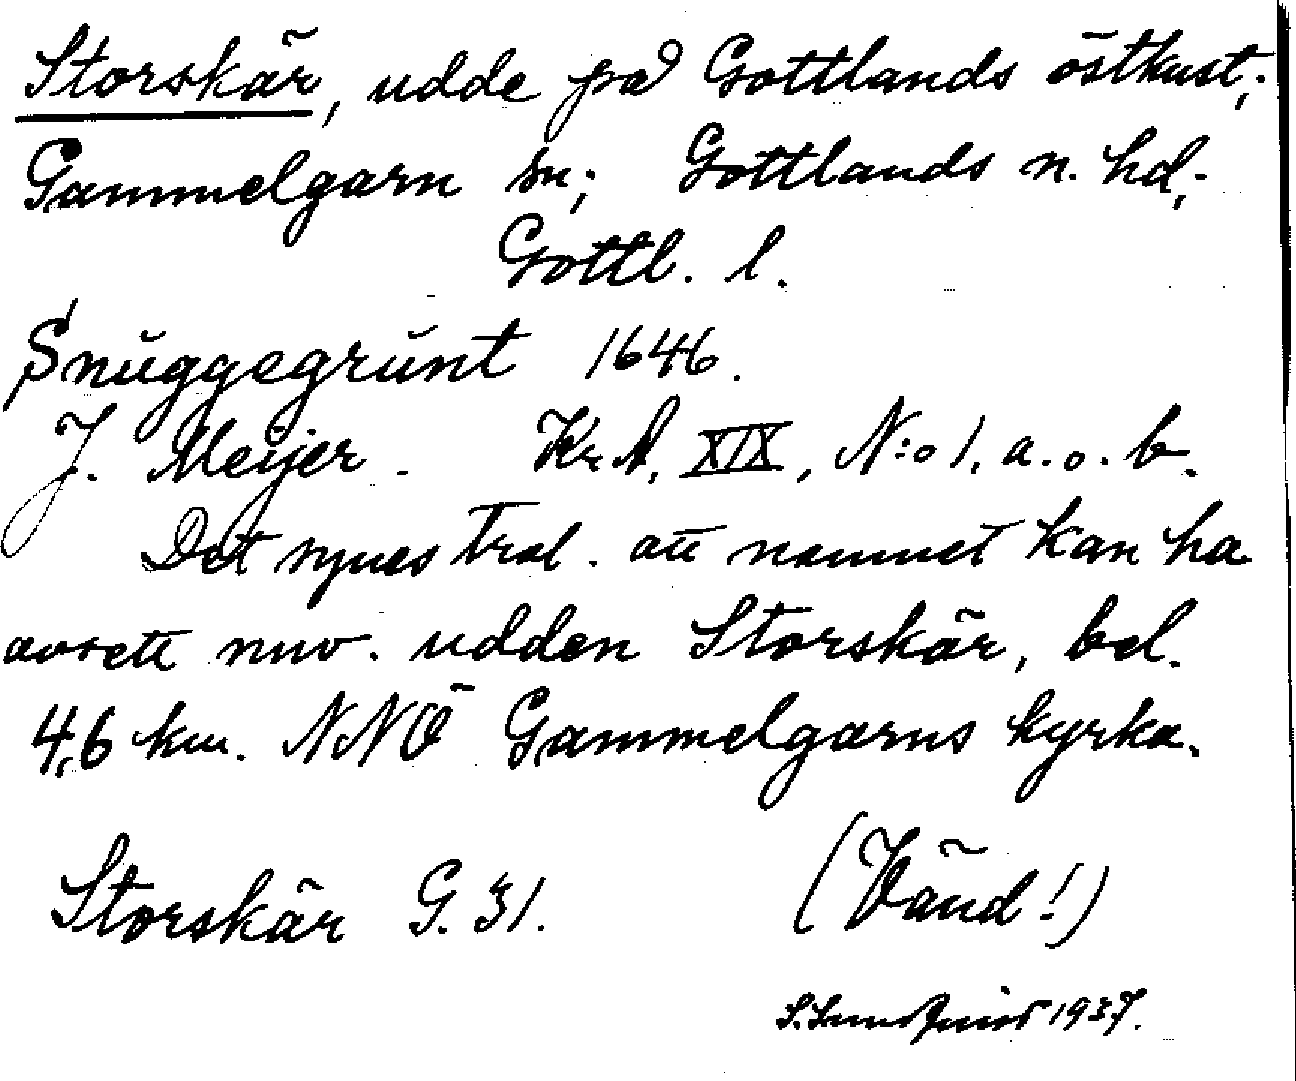 Storskär, udde på Gottlands östkust;
Gammelgarn sn; Gottlands n. hd;
Gottl. l.
Snŭggegrŭnt 1646.
J. Meijer. Kr A, XIX, N:o 1. a. o. b.
Det synes trol. att namnet kan ha
avsett nuv. udden Storskär, bel.
4,6 km. NNÖ Gammelgarns kyrka.
Storskär G. 31. (Vänd!)
S. Lundquist 1937.